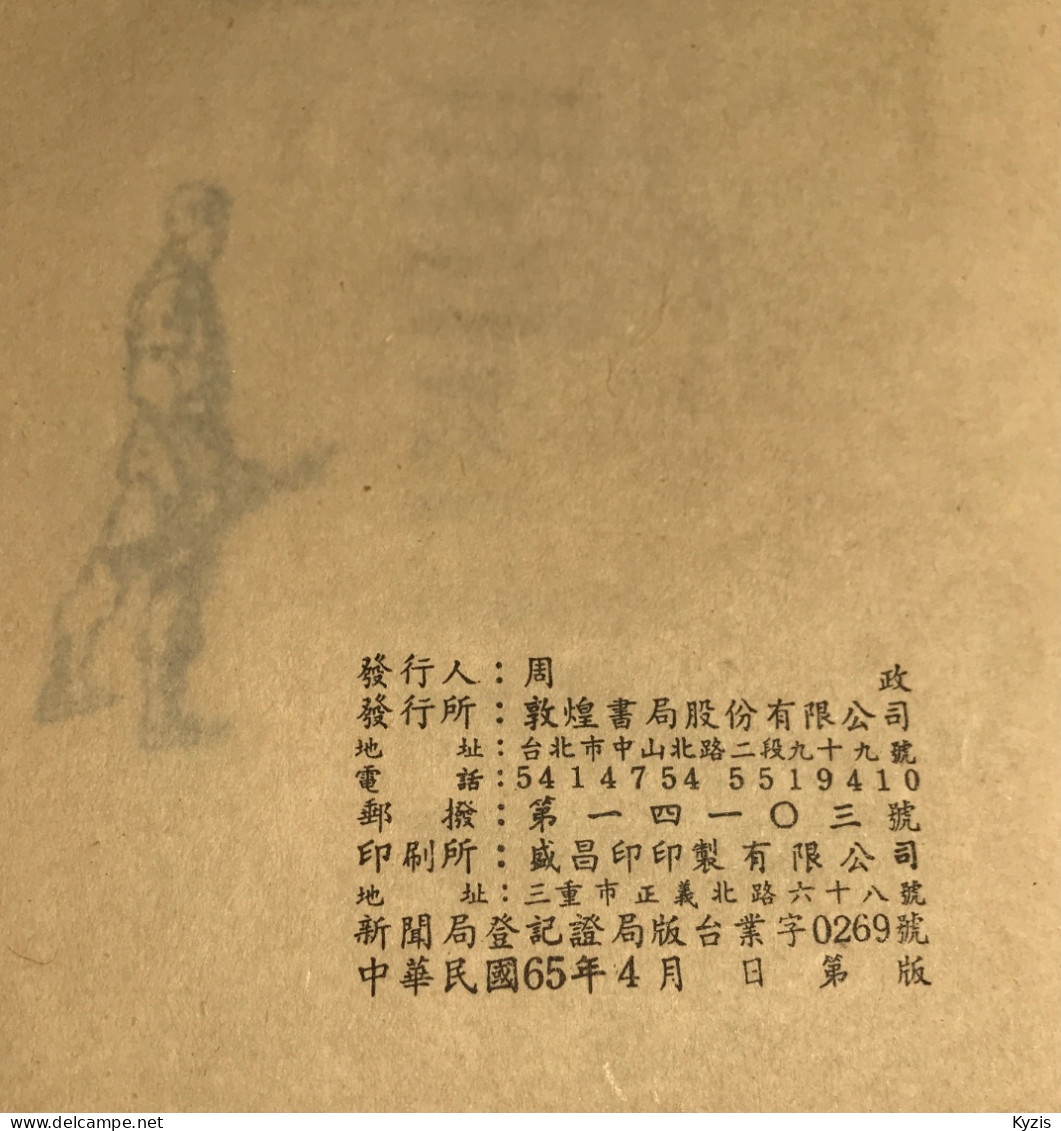 發行人：周　政
發行所：敦煌書局股份有限公司
地　址：台北市中山北路二段九十九號
電　話：5414754 5519410
郵　撥：第一四一〇三號
印刷所：盛昌印印製有限公司
地　址：三重市正義北路六十八號
新聞局登記證局版台業字0269號
中華民國65年4月　日　第　版
delcampe.net
Kyzis